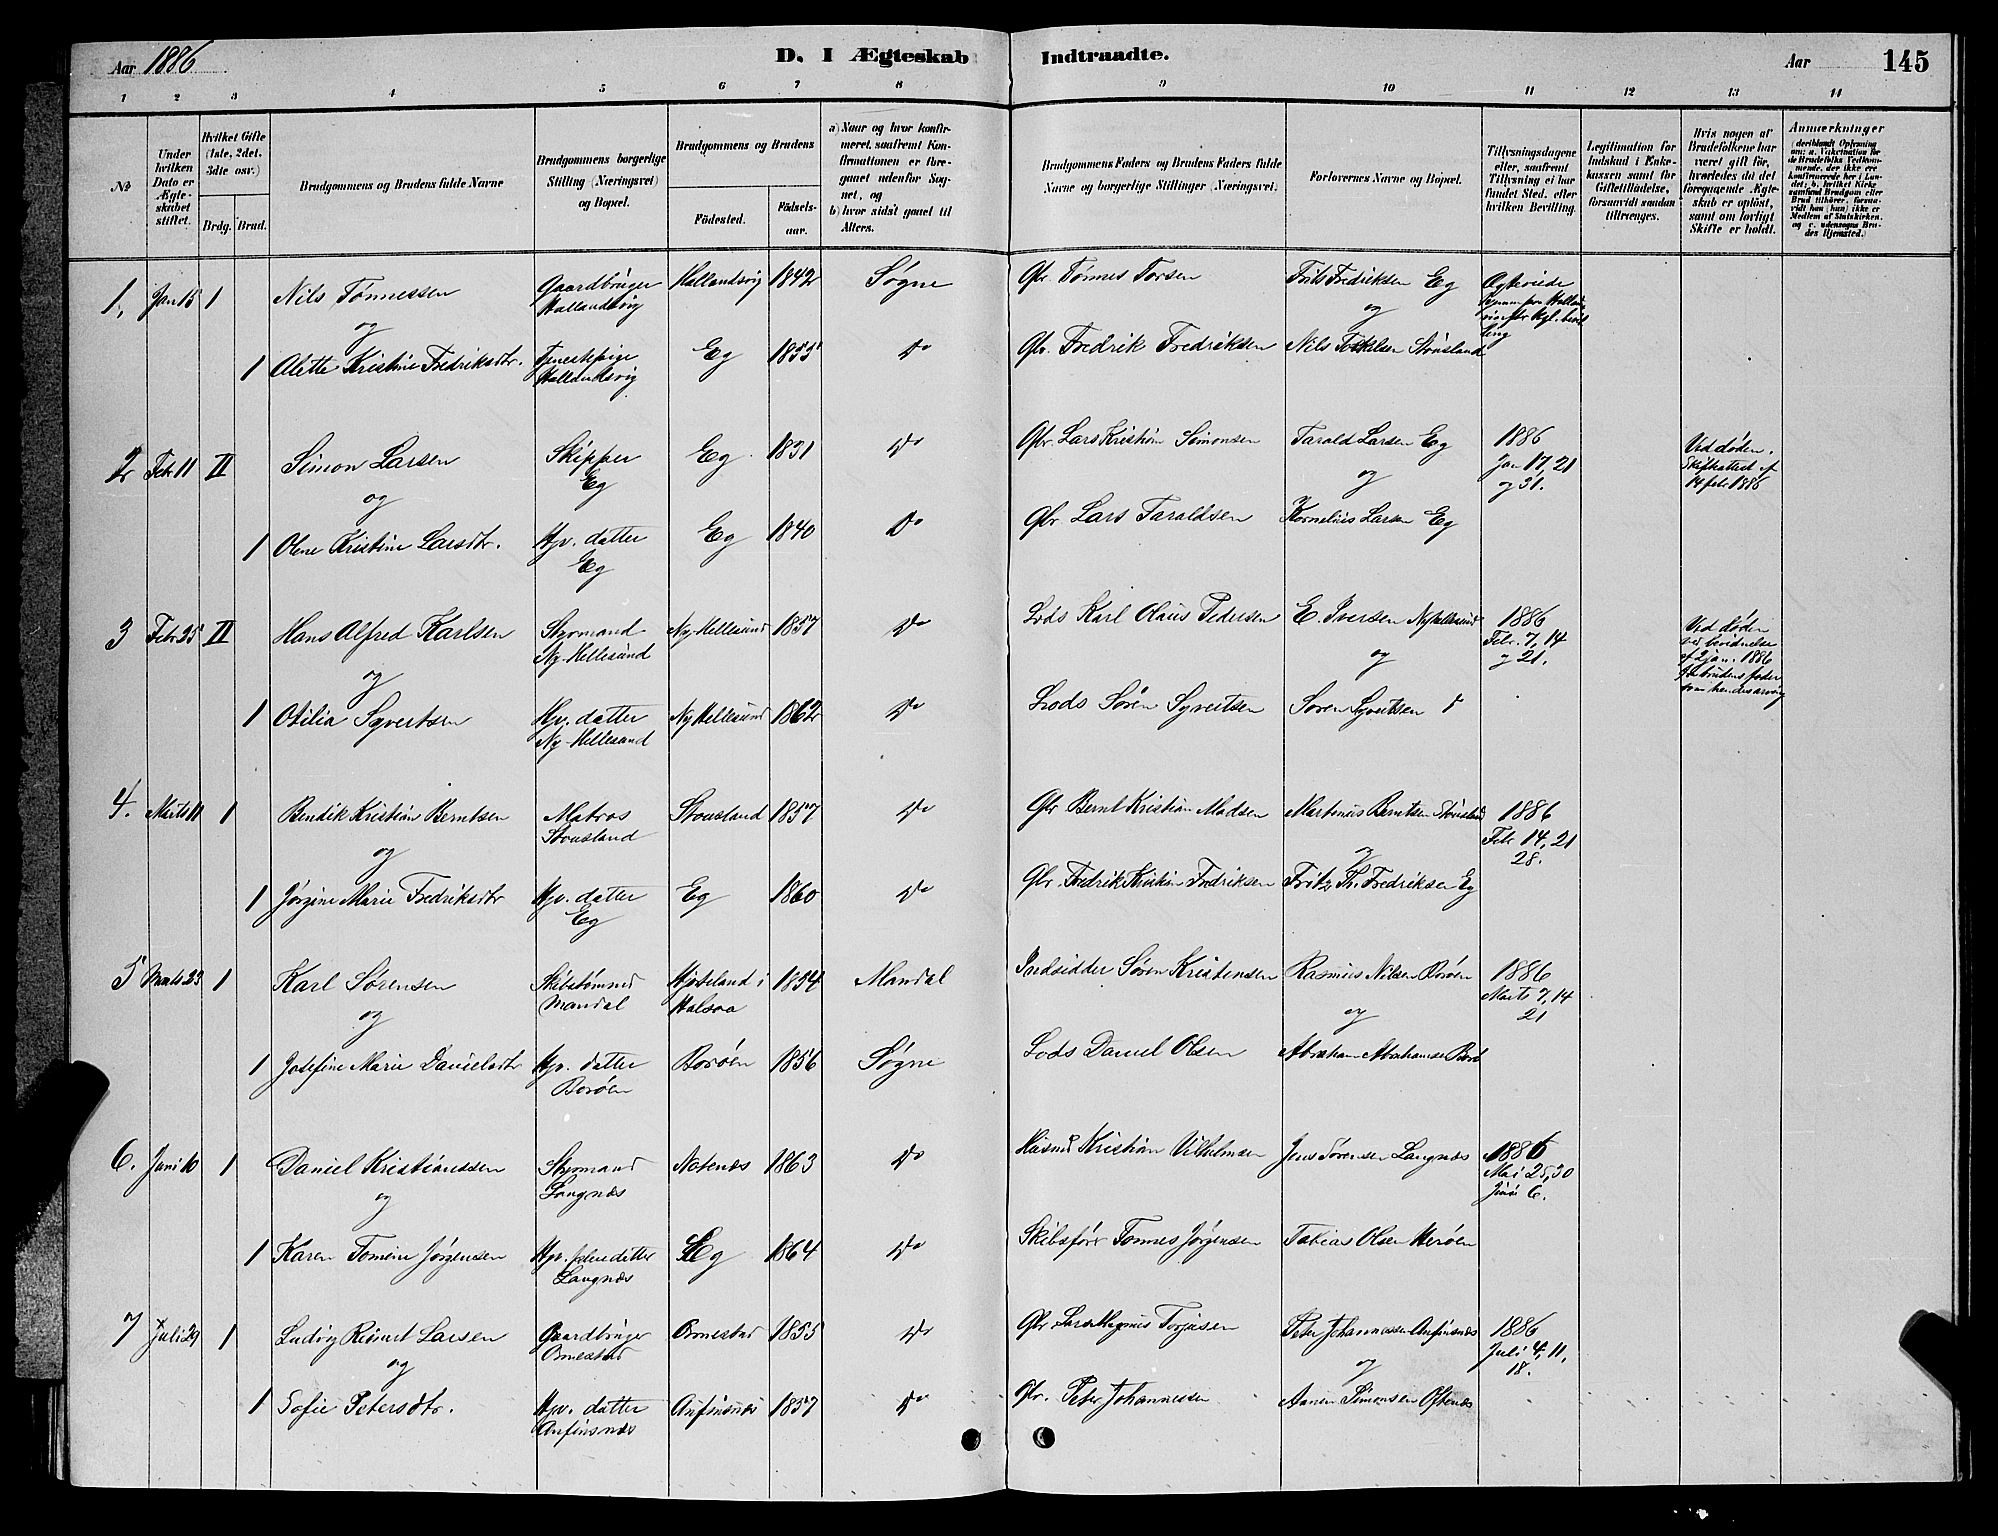 Aar 1886
D. I Ægteskab Indtraadte.
Aar
145
1 2 3 4 5 6 7 8 9 10 11 12 13 14
№
Under hvilken Dato er Ægteskabet stiftet.
Hvilket Gifte (1ste, 2det, 3die osv.)
Brdg. Brud.
Brudgommens og Brudens fulde Navne
Brudgommens borgerlige Stilling (Næringsvei) og Bopæl.
Brudgommens og Brudens
Fødested.
Fødsels-aar.
a) Naar og hvor konfirmeret, saafremt Konfirmationen er foregaaet udenfor Sognet, og
b) hvor sidst gaaet til Alters.
Brudgommens Faders og Brudens Faders fulde Navne og borgerlige Stillinger (Næringsvei).
Forlovernes Navne og Bopæl.
Tillysningsdagene eller, saafremt Tillysning ei har fundet Sted, efter hvilken Bevilling.
Legitimation for Indskud i Enkekassen samt for Giftetilladelse, forsaavidt saadan tiltrænges.
Hvis nogen af Brudefolkene har været gift før, hvorledes da det foregaaende Ægteskab er opløst, samt om lovligt Skifte er holdt.
Anmærkninger
1. Jan 15 1 Nils Tønnessen Gaardbruger Hallandsvig Hallandsvig 1842 Søgne Gbr Tønnes Torsen Frits Fredriksen Eg
og
1 Olette Kristine Fredriksdtr. Tjenestepige Hallandsvig Eg 1855 Do Gbr. Fredrik Fredriksen Nils Stousland
2 Febr 11 II Simon Larsen Skipper Eg Eg 1831 Do Gbr. Lars Kristian Simonsen Tarald Larsen Eg 1886 Jan 17, 21 og 31. Ved døden. Skifteattest af 14 febr. 1886
og
1 Olene Kristine Larsdtr. Hjv. datter Eg Eg 1840 Do Gbr Lars Taraldsen Kornelius Larsen Eg
3 Febr 25 II Hans Alfred Karlsen Styrmand Ny-Hellesund Ny-Hellesund 1857 Do Lods Karl Olaus Pedersen E. Iversen Nyhellesund 1886 Febr. 7, 14 og 21. Ved døden
og
1 Otilia Syvertsen Hjv. datter Ny-Hellesund Ny Hellesund 1862 Do Lods Søren Syvertsen Søren Syvertsen
4. Marts 11 1 Bendik Kristian Berntsen Matros Stousland Stousland 1857 Do Gbr Bernt Kristian Madsen Martinius Berntsen Stousland 1886 Febr 14, 21 28.
og
1 Jørgine Marie Fredriksdtr Hjv. datter Eg Eg 1860 Do Gbr. Fredrik Kristian Fredriksen Fritz Th. Fredriksen Eg
5 Marts 23 1 Karl Sørensen Mandal Hjorteland i Halsaa 1854 Mandal Indsidder Søren Kristensen Rasmus Nilsen Borøen 1886 Marts 7, 14 21
og
1 Josefine Marie Danielsdtr Hjv. datter Borøen Borøen 1856 Søgne Lods Daniel Olsen Abraham Abrahamsen
6. Juni 10 1 Daniel Kristianssen Styrmand Langnæs Notenæs 1863 Do Husmd Kristian Vilhelmsen Jens Sørensen Langnæs 1886 Mai 25, 30 Juni 6.
og
1 Karen Tomine Jørgensen Hjv. datter Langnæs Eg 1864 Do Skibsfører Tønnes Jørgensen Tobias Olsen Herøen
7 Juli 29 1 Ludvig Reinert Larsen Gaardbruger Omestad Omestad 1855 Do Gbr Lars Magnus Torjusen Peter Johannessen Anfinsnæs 1886 Juli 4, 11, 18.
og
1 Sofie Petersdtr. Hjv. datter Anfinsnæs Anfinsnæs 1857 Do Gbr. Peter Johannessen Aanen Simonsen Oftenæs